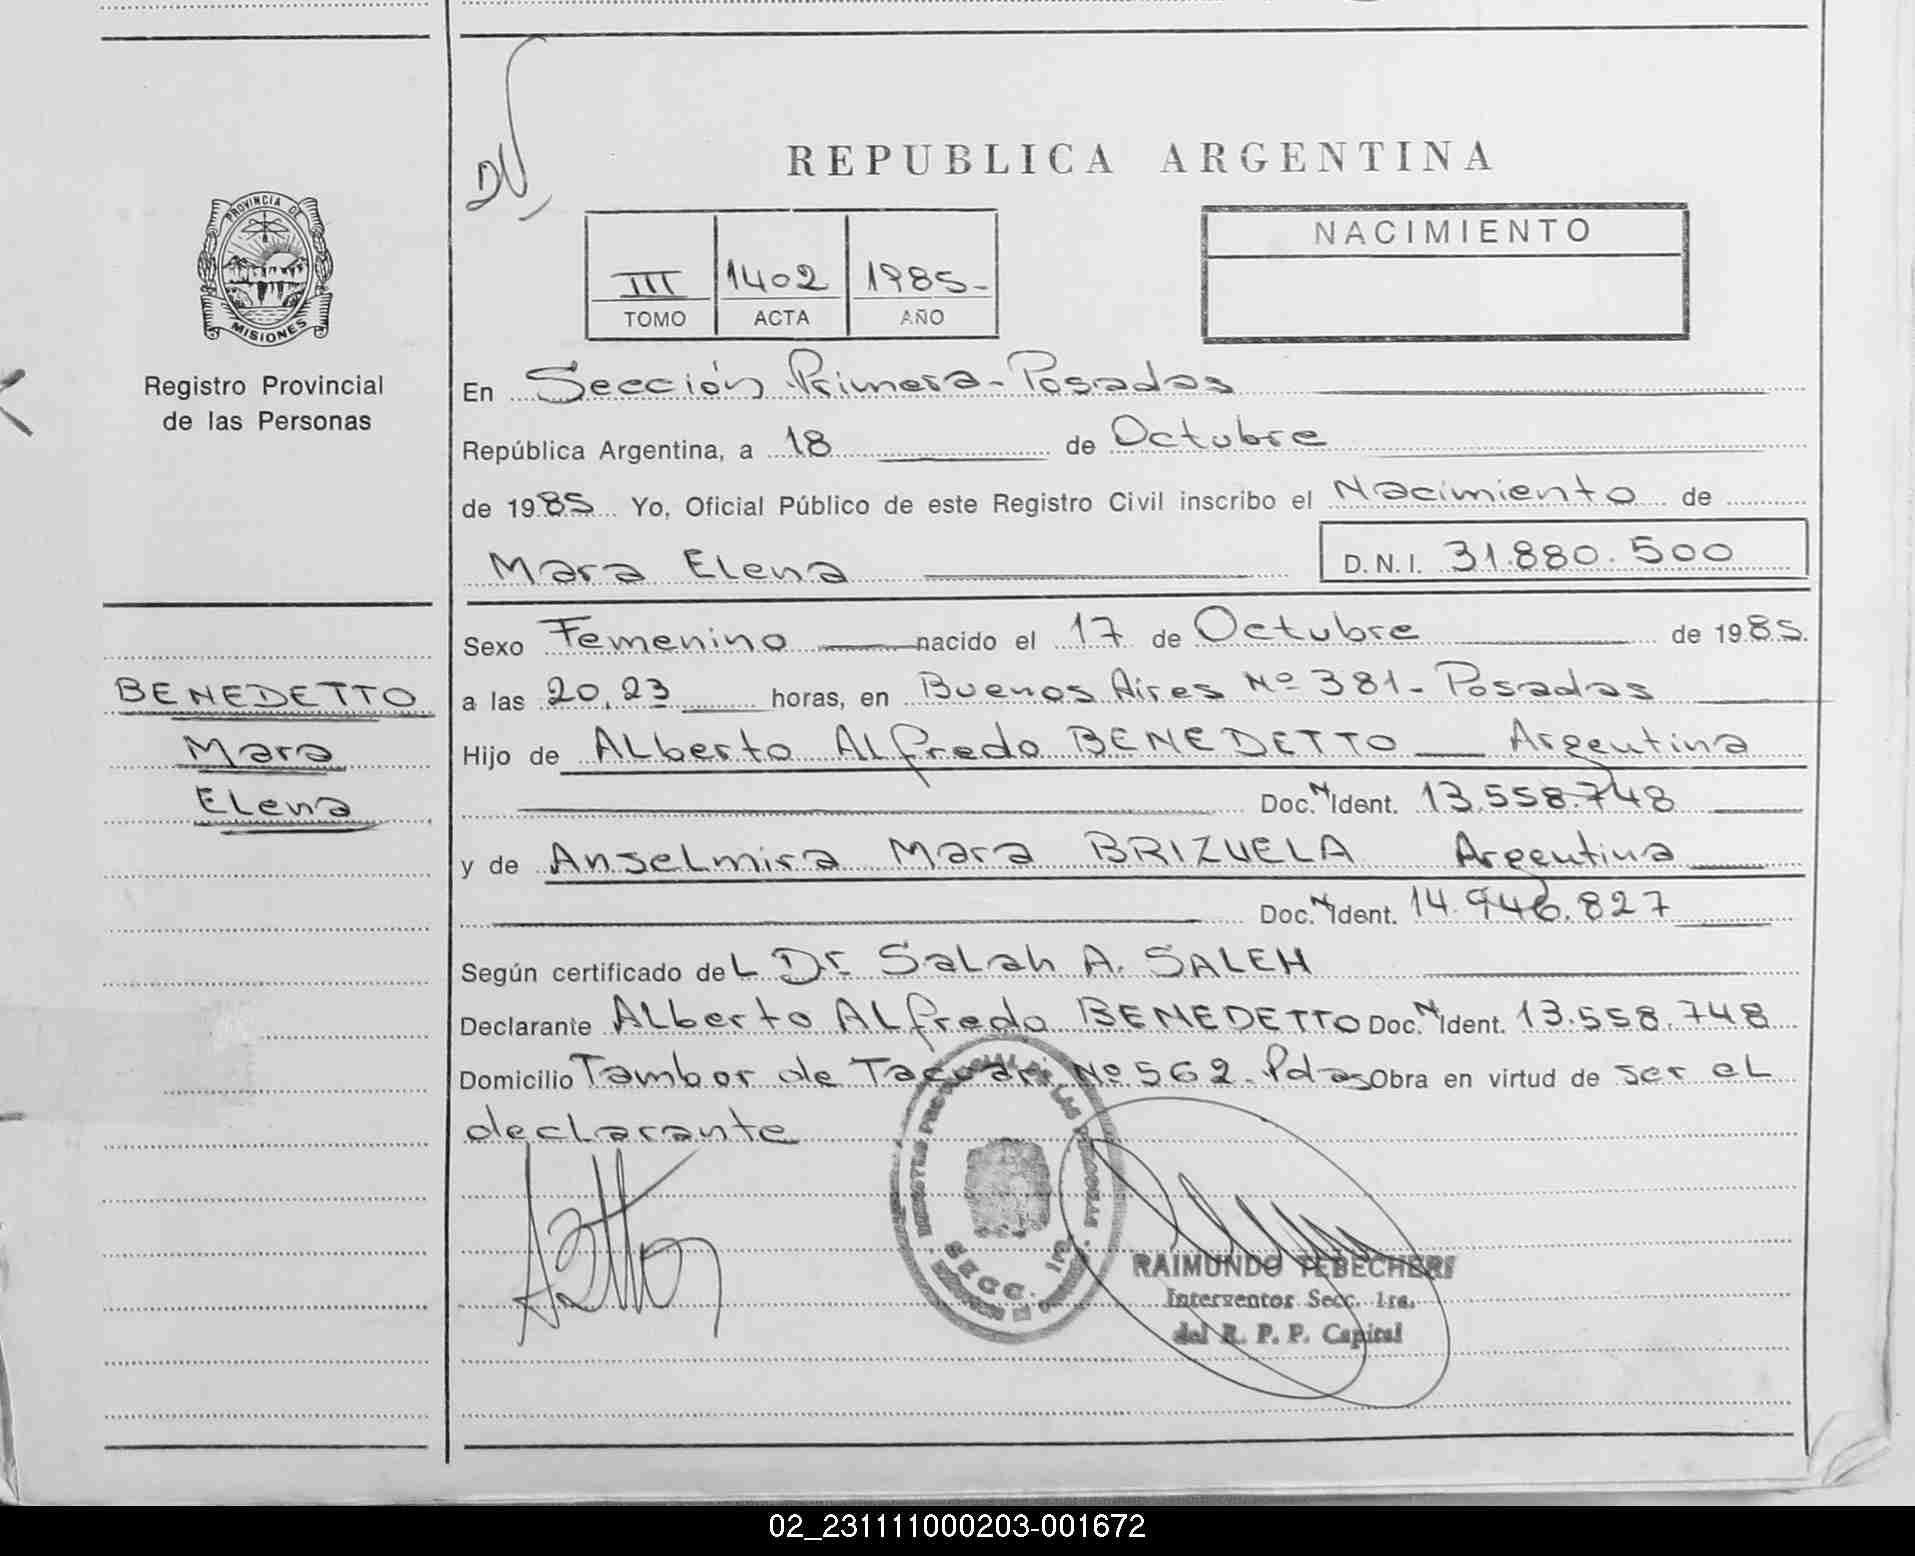 DN
REPUBLICA ARGENTINA
PROVINCIA DE
MISIONES
Registro Provincial
de las Personas
III 1402 1985-
TOMO ACTA AÑO
NACIMIENTO
En Sección Primera - Posadas
República Argentina, a 18 de Octubre
de 1985 Yo, Oficial Público de este Registro Civil inscribo el Nacimiento de
Mara Elena D.N.I. 31.880.500
Sexo Femenino nacido el 17 de Octubre de 1985.
BENEDETTO
Mara
Elena
a las 20,23 horas, en Buenos Aires Nº 381 - Posadas
Hijo de Alberto Alfredo BENEDETTO Argentina
Doc. N Ident. 13.558.748
y de Anselmira Mara BRIZUELA Argentina
Doc. N Ident. 14.946.827
Según certificado del Dr. Salah A. SALEH
Declarante Alberto Alfredo BENEDETTO Doc. N Ident. 13.558.748
Domicilio Tambor de Tacuari Nº 562 - Pdas Obra en virtud de ser el
declarante
SECC. 1ra
RAIMUNDO TEBECHERI
Interventor Secc. 1ra.
del R. P. P. Capital
02_231111000203-001672